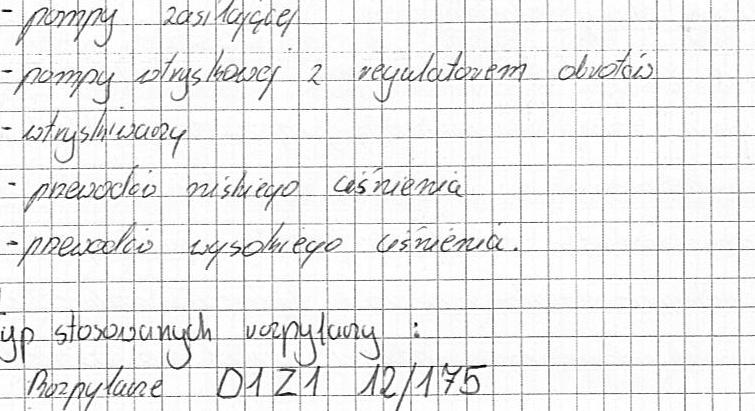 - pompy zasilającej
- pompy wtryskowej z regulatorem obrotów
- wtryskiwaczy
- przewodów niskiego ciśnienia
- przewodów wysokiego ciśnienia.
yp stosowanych rozpylaczy :
Rozpylacze D1Z1 12/175